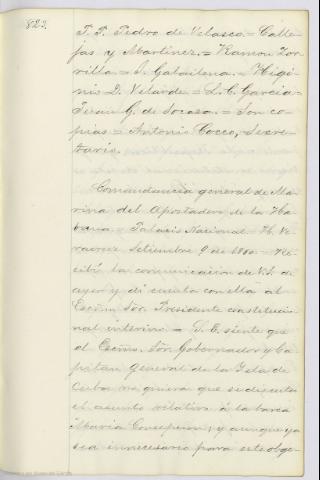 823.
T. P. Pedro de Velasco.= Calle-
jas y Martinez.= Ramon Zor-
rilla.= J. Galailena.= Higi-
nio D. Velarde.= L. C. Garcia-
Juan G. de Socasa.= Son co-
pias.= Antonio Cocco, Secre-
tario.
Comandancia general de Ma-
rina del Apostadero de la Ha-
bana.= Palacio Nacional. H. Ve-
racruz Setiembre 9 de 1860.= Re-
cibí la comunicacion de V.S. de
ayer y dí cuenta con ella al
Escmo. Sor. Presidente constitucio-
nal interino.= S. E. siente que
el Escmo. Sor. Gobernador y Ca-
pitan General de la Isla de
Cuba no quiera que se discuta
el asunto relativo á la barca
María Concepcion; y aunque ya
sea innecesario para este obge-